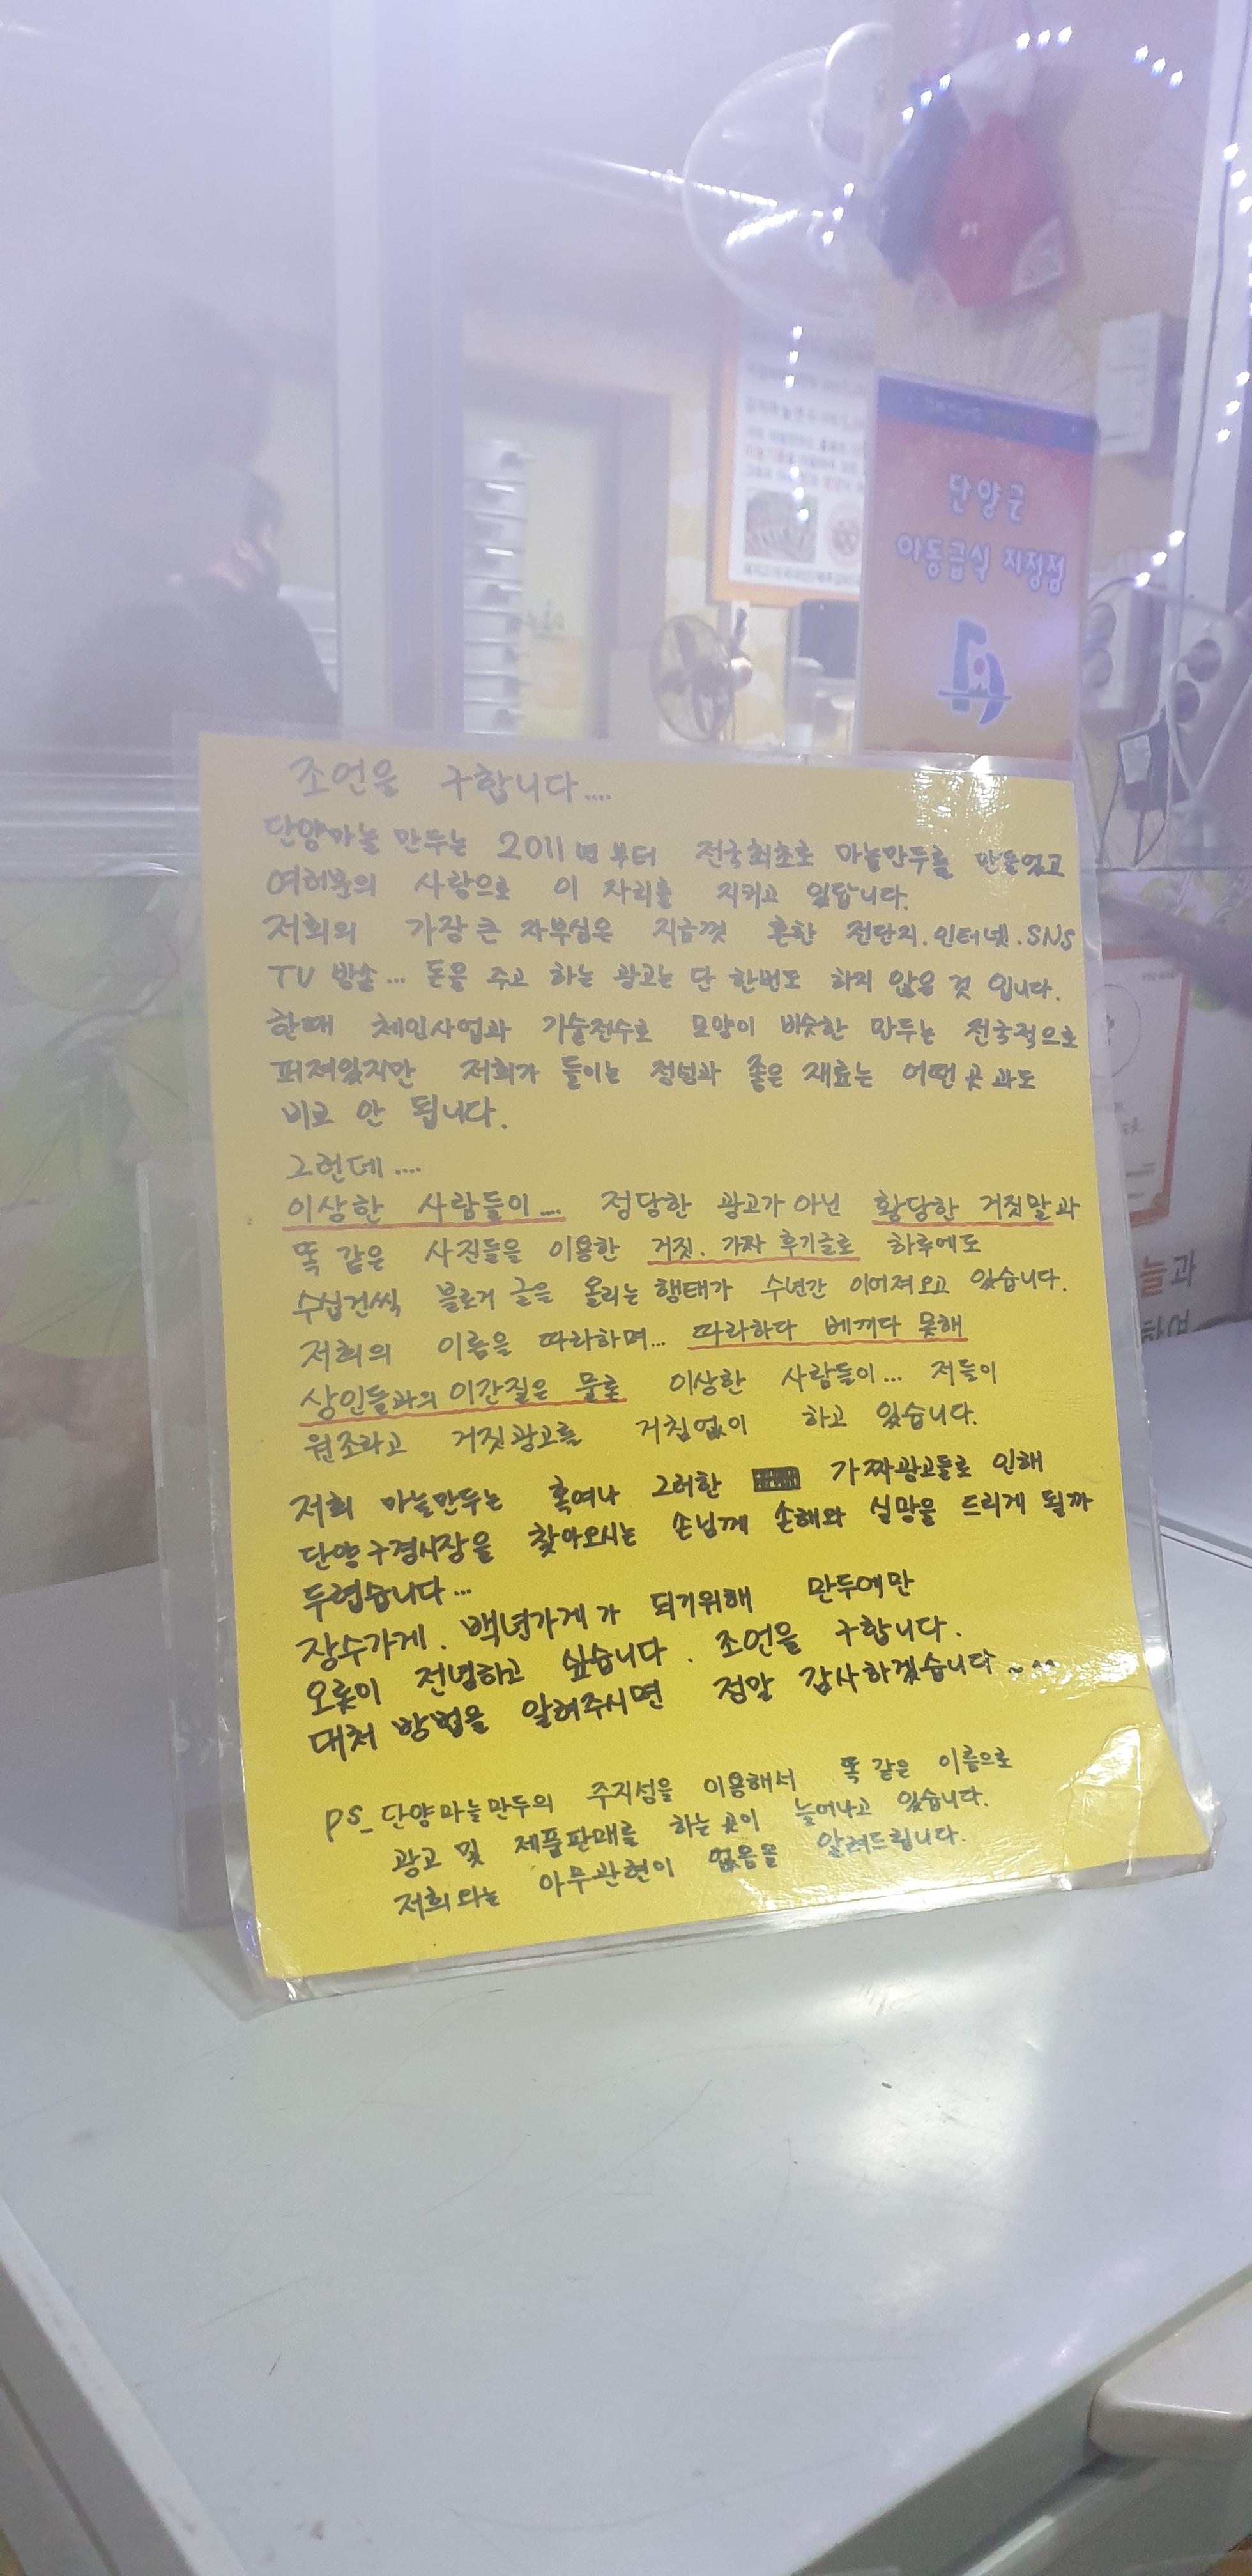 단양군
아동급식 지정점
조언을 구합니다....
단양마늘만두는 2011년부터 전국최초로 마늘만두를 만들었고
여러분의 사랑으로 이 자리를 지키고 있답니다.
저희의 가장 큰 자부심은 지금껏 흔한 전단지.인터넷.SNS
TV 방송... 돈을 주고 하는 광고는 단 한번도 하지 않은 것 입니다.
한때 체인사업과 기술전수로 모양이 비슷한 만두는 전국적으로
퍼져있지만 저희가 들이는 정성과 좋은 재료는 어떤곳과도
비교 안 됩니다.
그런데....
이상한 사람들이.... 정당한 광고가 아닌 황당한 거짓말과
똑 같은 사진들을 이용한 거짓. 가짜 후기글로 하루에도
수십건씩 블로거 글을 올리는 행태가 수년간 이어져오고 있습니다.
저희의 이름을 따라하며... 따라하다 베끼다 못해
상인들과의 이간질은 물론 이상한 사람들이... 저들이
원조라고 거짓광고를 거침없이 하고 있습니다.
저희 마늘만두는 혹여나 그러한 가짜광고들로 인해
단양구경시장을 찾아오시는 손님께 손해와 실망을 드리게 될까
두렵습니다...
장수가게. 백년가게가 되기위해 만두에만
오롯이 전념하고 싶습니다. 조언을 구합니다.
대처 방법을 알려주시면 정말 감사하겠습니다~^^
PS_ 단양마늘만두의 주지성을 이용해서 똑 같은 이름으로
광고 및 제품판매를 하는곳이 늘어나고 있습니다.
저희와는 아무관현이 없음을 알려드립니다.
늘과